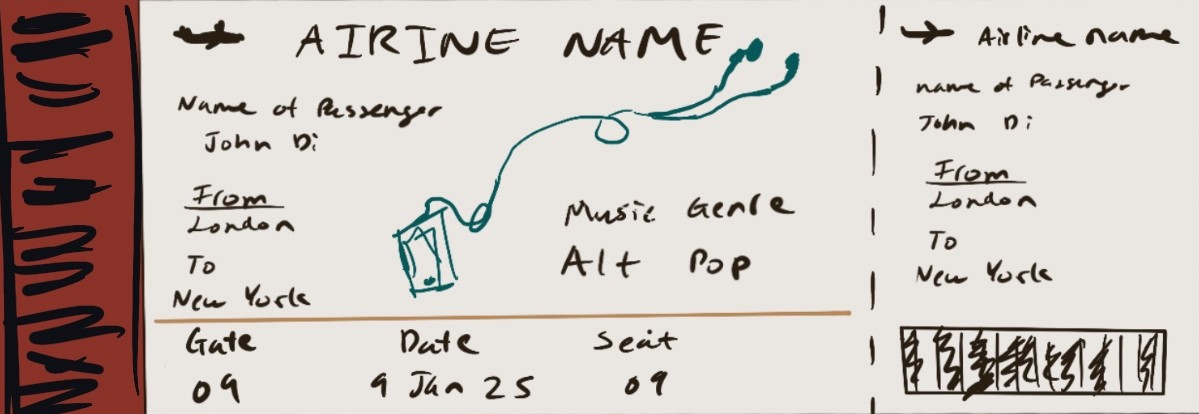 AIRINE NAME
Name of Passenger
John Di
From
London
To
New York
Music Genre
Alt Pop
Gate
09
Date
9 Jan 25
Seat
09
Airline name
name of Passenger
John Di
From
London
To
New York